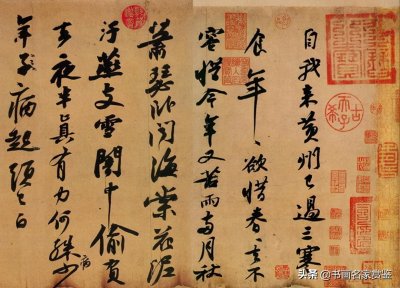 自我来黄州已過三寒
食年〻欲惜春〻去不
容惜今年又苦雨兩月秋
蕭瑟卧聞海棠花泥
汙燕支雪闇中偷負
去夜半真有力何殊少
病
年子病起須已白
古希天子
头条 @书画名家赏鉴